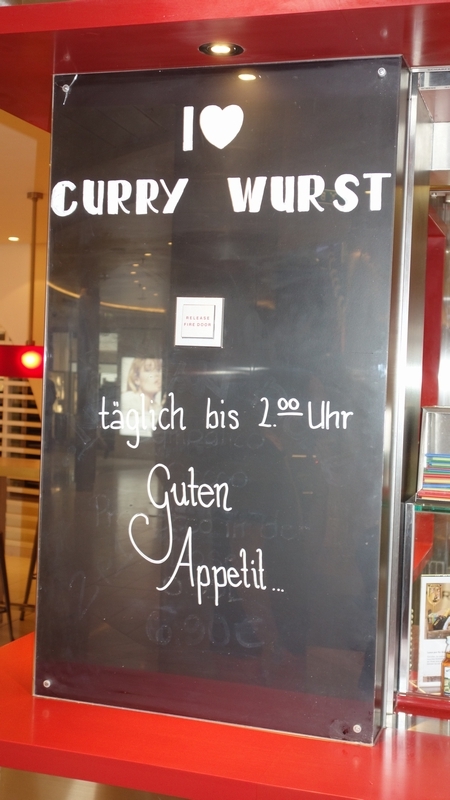 I ♥
CURRY WURST
RELEASE
FIRE DOOR
täglich bis 2.00 Uhr
Guten
Appetit...